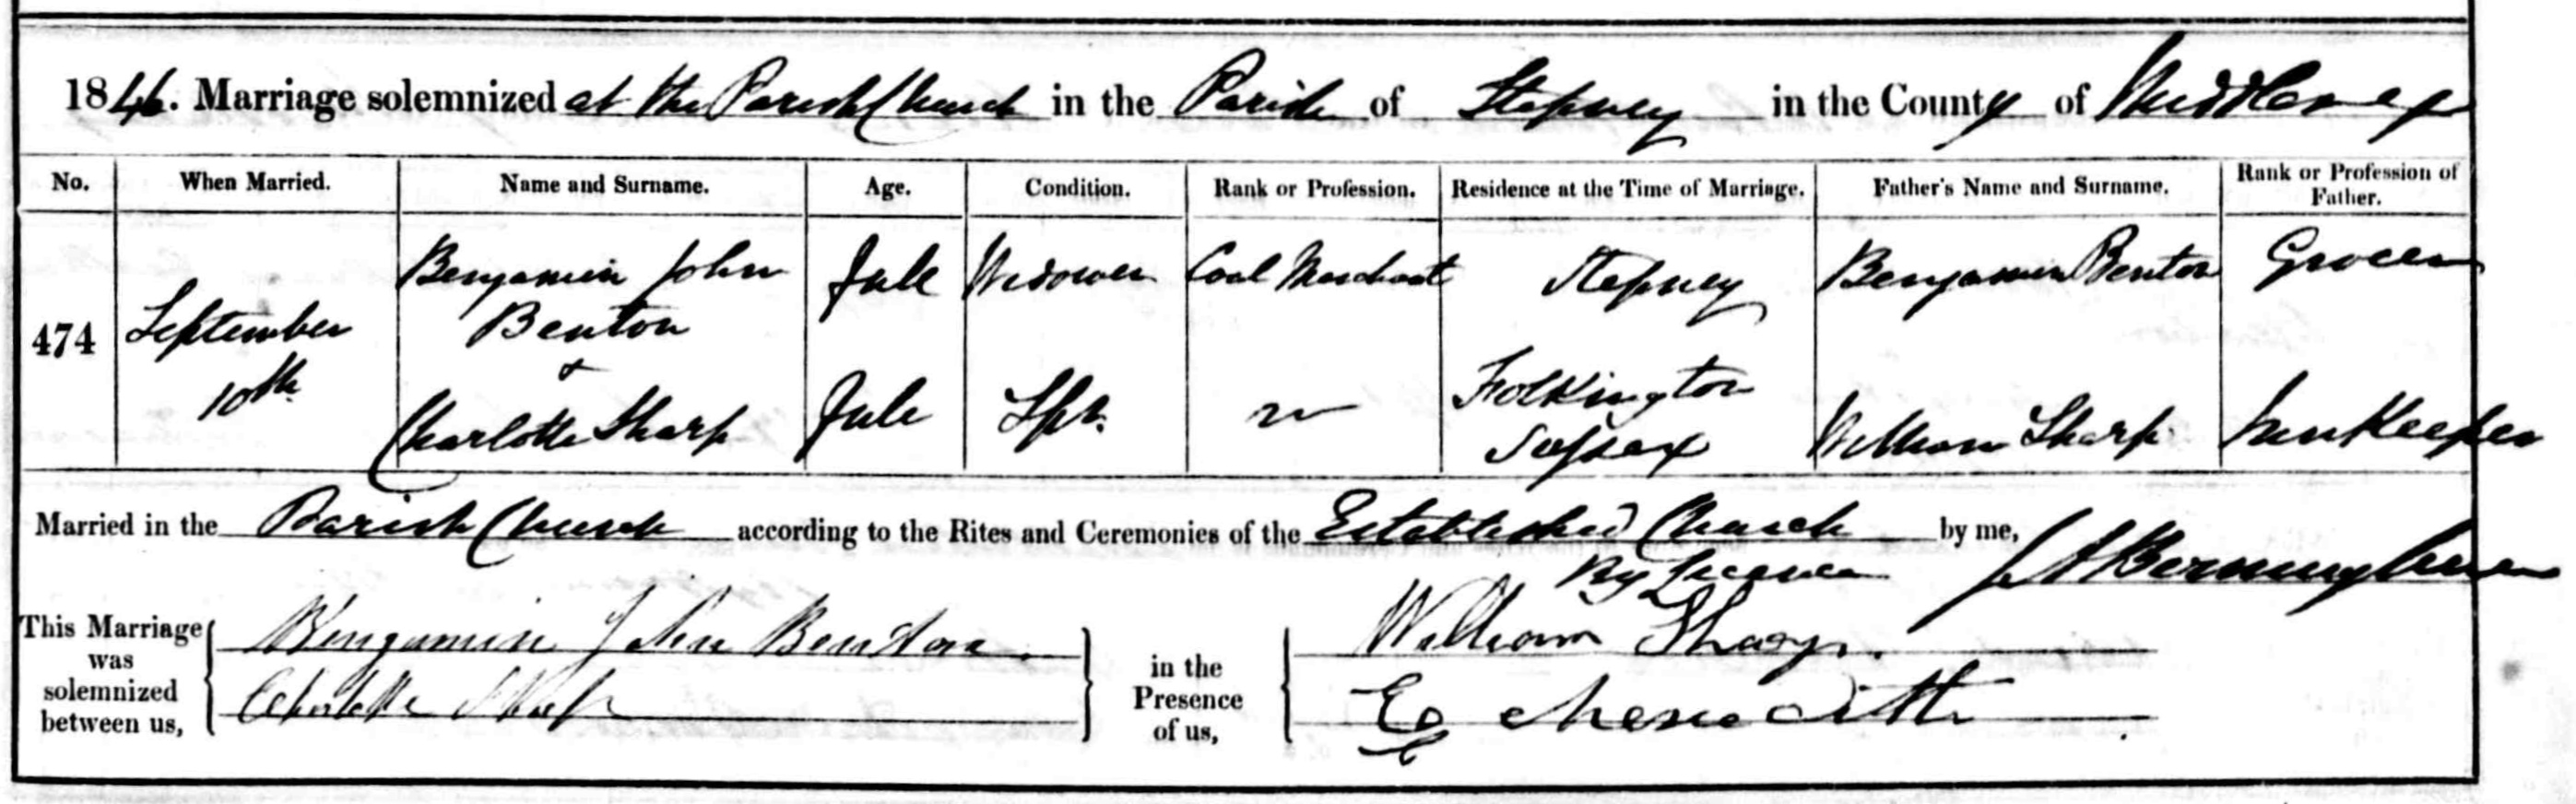 1846. Marriage solemnized at the Parish Church in the Parish of Stepney in the County of Middlesex
No. When Married. Name and Surname. Age. Condition. Rank or Profession. Residence at the Time of Marriage. Father's Name and Surname. Rank or Profession of Father.
474 September 10th Benjamin John Benton Full Widower Coal Merchant Stepney Benjamin Benton Grocer
+
Charlotte Sharp Full Spr. Folkington Sussex William Sharp Innkeeper
Married in the Parish Church according to the Rites and Ceremonies of the Established Church by me,
By Licence
This Marriage was solemnized between us, Benjamin John Benton Charlotte Sharp in the Presence of us, William Sharp. E Meredith